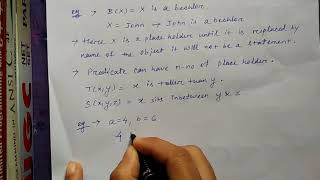 eg → B(x) = x is a bechlor
x = John → John is a bechlor.
→ Hence x is a place holder until it is replaced by
name of the object it will not be a statement.
→ Predicate can have n-no of place holder.
T(x,y) = x is taller than y.
S(x,y,z) = x sits inbetween y & z
eg → a=4, b=6
4